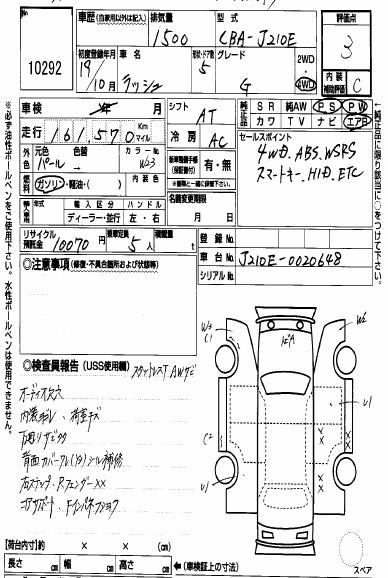 No.
10292
車歴 (自家用以外は記入)
排気量
1500
型式
CBA-J210E
評価点
3
初度登録年月
19/10月
ラッシュ
形状・ドア数
5
グレード
G
2WD
4WD
内装
補助評価
C
車検 年 月
シフト
AT
純正品
SR 純AW PS PW
カワ TV ナビ エアB
走行
161,570
Km
マイル
冷房
AC
セールスポイント
4WD. ABS. WSRS
スマートキー. HID. ETC
外色
元色
パール
色替
→
カラーNo.
W23
燃料
ガソリン・軽油・( )
内装色
新車整備手帳
(保証書付)
有・無
※書類と一緒に後日。
輸入車
年式
輸入区分
ハンドル
ディーラー・並行
左・右
名義変更期限
月 日
リサイクル
預託金
10070
円
乗車定員
5
人
積載量
t
登録No.
車台No.
J210E-0020648
シリアルNo.
◎注意事項 (修復・不具合箇所および状態等)
◎検査員報告 (USS使用欄)
スタットレスT AWサビ
オーディオ欠穴
内装汚レ、荷室キズ
下廻リサビサク
背面カバーアレ(ワレ)シール補修
右ステップ、Rフェンダー××
コアサポート、Fインパネプッシュ
W3
C1
W2
U1
C2
U1
×
×
×
×
スペア
【荷台内寸】約 × × (cm)
長さ cm
幅 cm
高さ cm
←(車検証上の寸法)
※必ず油性ボールペンをご使用下さい。水性ボールペンは使用できません。
←純正品に限り該当に○をつけて下さい。